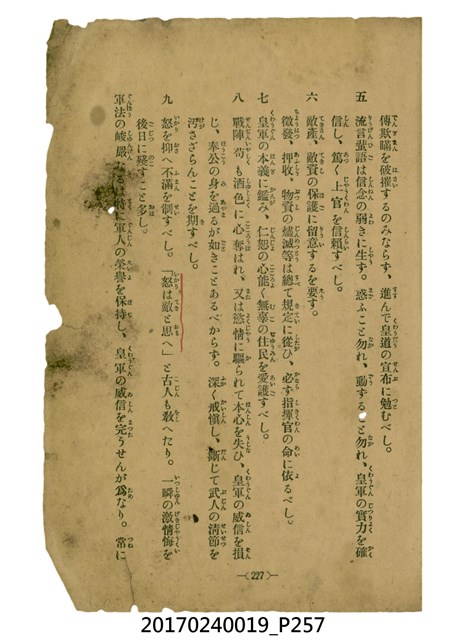 傳欺瞞を破摧するのみならず、進んで皇道の宣布に勉むべし。
五 流言蜚語は信念の弱きに生ず。惑ふこと勿れ、動ずること勿れ、皇軍の實力を確
信し、篤く上官を信賴すべし。
六 敵產、敵資の保護に留意するを要す。
徵發、押收、物資の燼滅等は總て規定に從ひ、必ず指揮官の命に依るべし。
七 皇軍の本義に鑑み、仁恕の心能く無辜の住民を愛護すべし。
八 戰陣苟も酒色に心奪はれ、又は慾情に驅られて本心を失ひ、皇軍の威信を損
じ、奉公の身を過るが如きことあるべからず。深く戒愼し、斷じて武人の淸節を
汚さざらんことを期すべし。
九 怒を抑へ不滿を制すべし。「怒は敵と思へ」と古人も敎へたり。一瞬の激情悔を
後日に殘すこと多し。
軍法の峻嚴なるは特に軍人の榮譽を保持し、皇軍の威信を完うせんが爲なり。常に
—( 227 )—
20170240019_P257